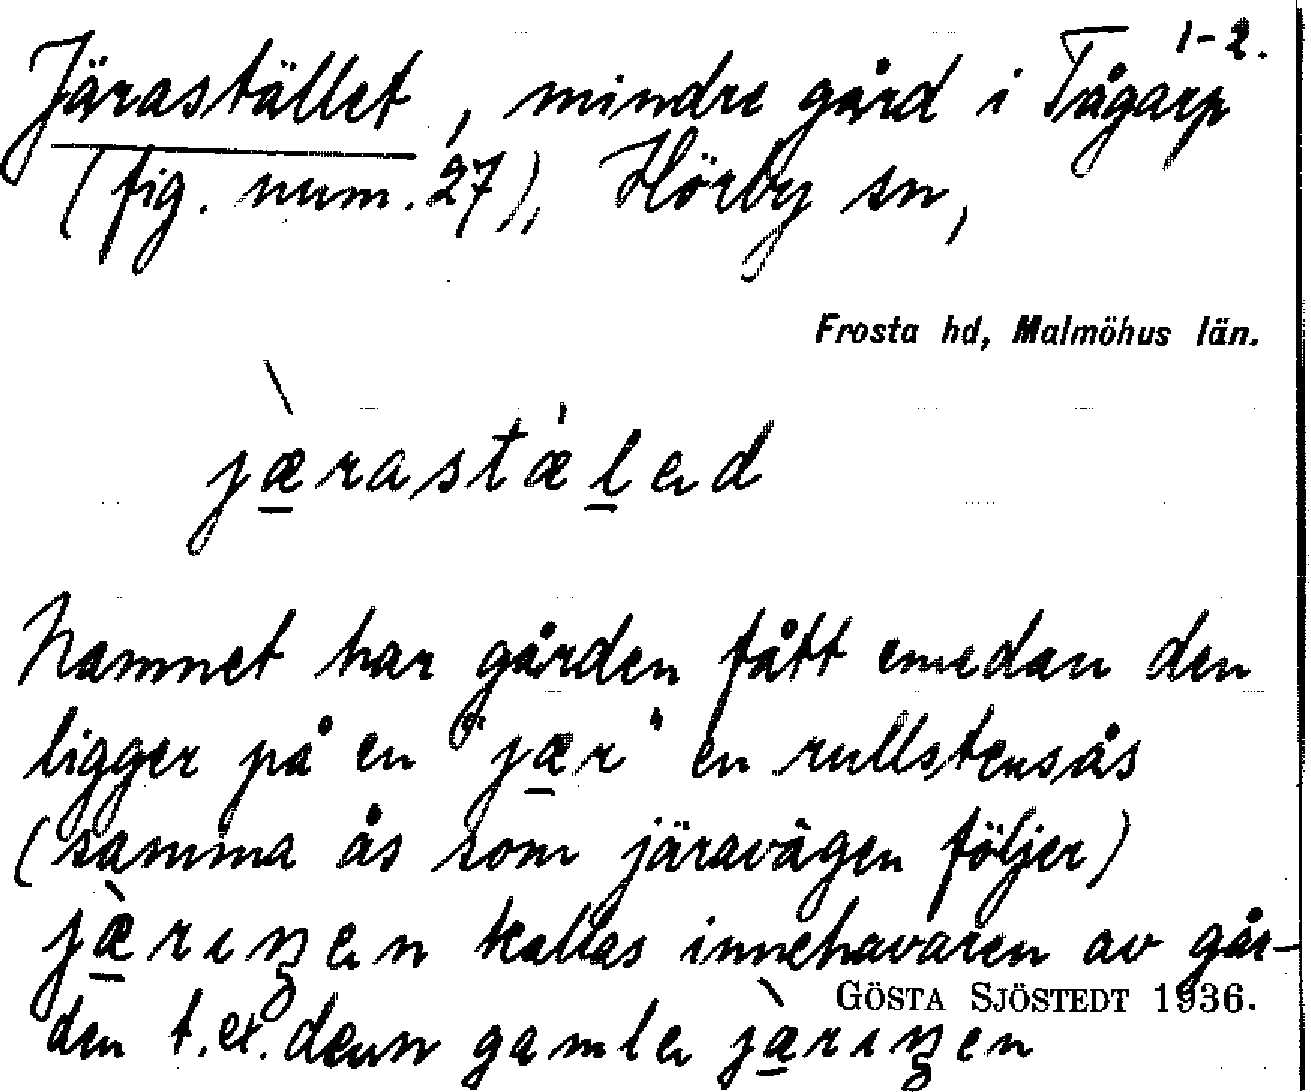 1-2.
Järastället, mindre gård i Tågarp
(fig. num. 27), Hörby sn,
Frosta hd, Malmöhus län.
jærastæləd
Namnet har gården fått emedan den
ligger på en "jær" en rullstensås
(samma ås som järavägen följer)
jærıŋən kallas innehavaren av går-
GÖSTA SJÖSTEDT 1936.
den t. ex. dænn gamlə jærıŋən